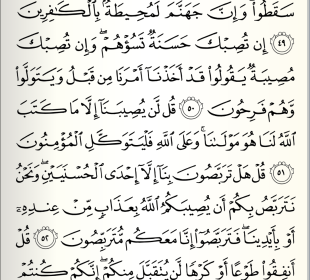 سَقَطُوا۟ ۗ وَإِنَّ جَهَنَّمَ لَمُحِيطَةٌۢ بِٱلْكَـٰفِرِينَ
﴿٤٩﴾ إِن تُصِبْكَ حَسَنَةٌ تَسُؤْهُمْ ۖ وَإِن تُصِبْكَ
مُصِيبَةٌ يَقُولُوا۟ قَدْ أَخَذْنَآ أَمْرَنَا مِن قَبْلُ وَيَتَوَلَّوا۟
وَّهُمْ فَرِحُونَ ﴿٥٠﴾ قُل لَّن يُصِيبَنَآ إِلَّا مَا كَتَبَ
ٱللَّهُ لَنَا هُوَ مَوْلَىٰنَا ۚ وَعَلَى ٱللَّهِ فَلْيَتَوَكَّلِ ٱلْمُؤْمِنُونَ
﴿٥١﴾ قُلْ هَلْ تَرَبَّصُونَ بِنَآ إِلَّآ إِحْدَى ٱلْحُسْنَيَيْنِ ۖ وَنَحْنُ
نَتَرَبَّصُ بِكُمْ أَن يُصِيبَكُمُ ٱللَّهُ بِعَذَابٍ مِّنْ عِندِهِۦٓ
أَوْ بِأَيْدِينَا ۖ فَتَرَبَّصُوٓا۟ إِنَّا مَعَكُم مُّتَرَبِّصُونَ ﴿٥٢﴾ قُلْ
أَنفِقُوا۟ طَوْعًا أَوْ كَرْهًا لَّن يُتَقَبَّلَ مِنكُمْ ۖ إِنَّكُمْ كُنتُمْ